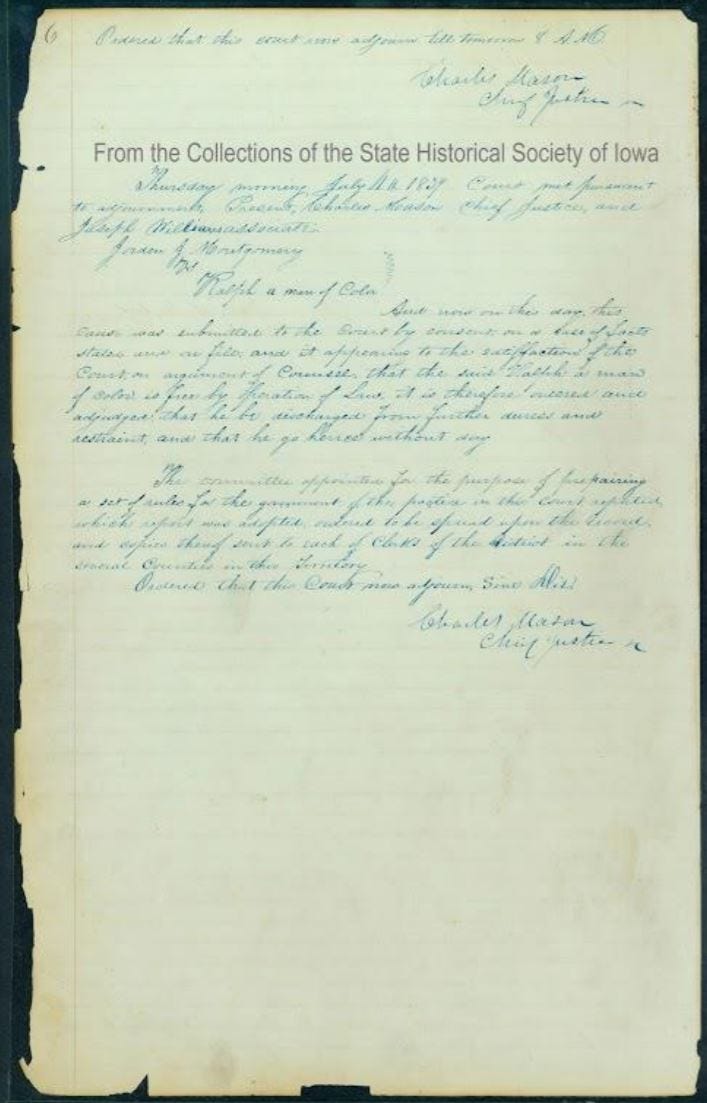 6
Ordered that this court now adjourn till tomorrow 8 A.M.
Charles Mason
Chief Justice
From the Collections of the State Historical Society of Iowa
Thursday morning July 4th 1839 Court met pursuant
to adjournment, Present, Charles Mason Chief Justice, and
Joseph Williams associate
Jordon J. Montgomery
Vs
Ralph a man of Color
And now on this day, this
cause was submitted to the Court by consent on a case of facts
stated and on file, and it appearing to the satisfaction of the
Court on argument of Counsel, that the said Ralph a man
of color is free by operation of Law, it is therefore ordered and
adjudged that he be discharged from further duress and
restraint, and that he go hence without day
The committee appointed for the purpose of prepairing
a set of rules for the of the in the Court reported
which report was adopted, ordered to be spread upon the record,
and copies thereof sent to each of Clerks of the district in the
several Counties in this Territory
Ordered that this Court now adjourn, Sine Die.
Charles Mason
Chief Justice